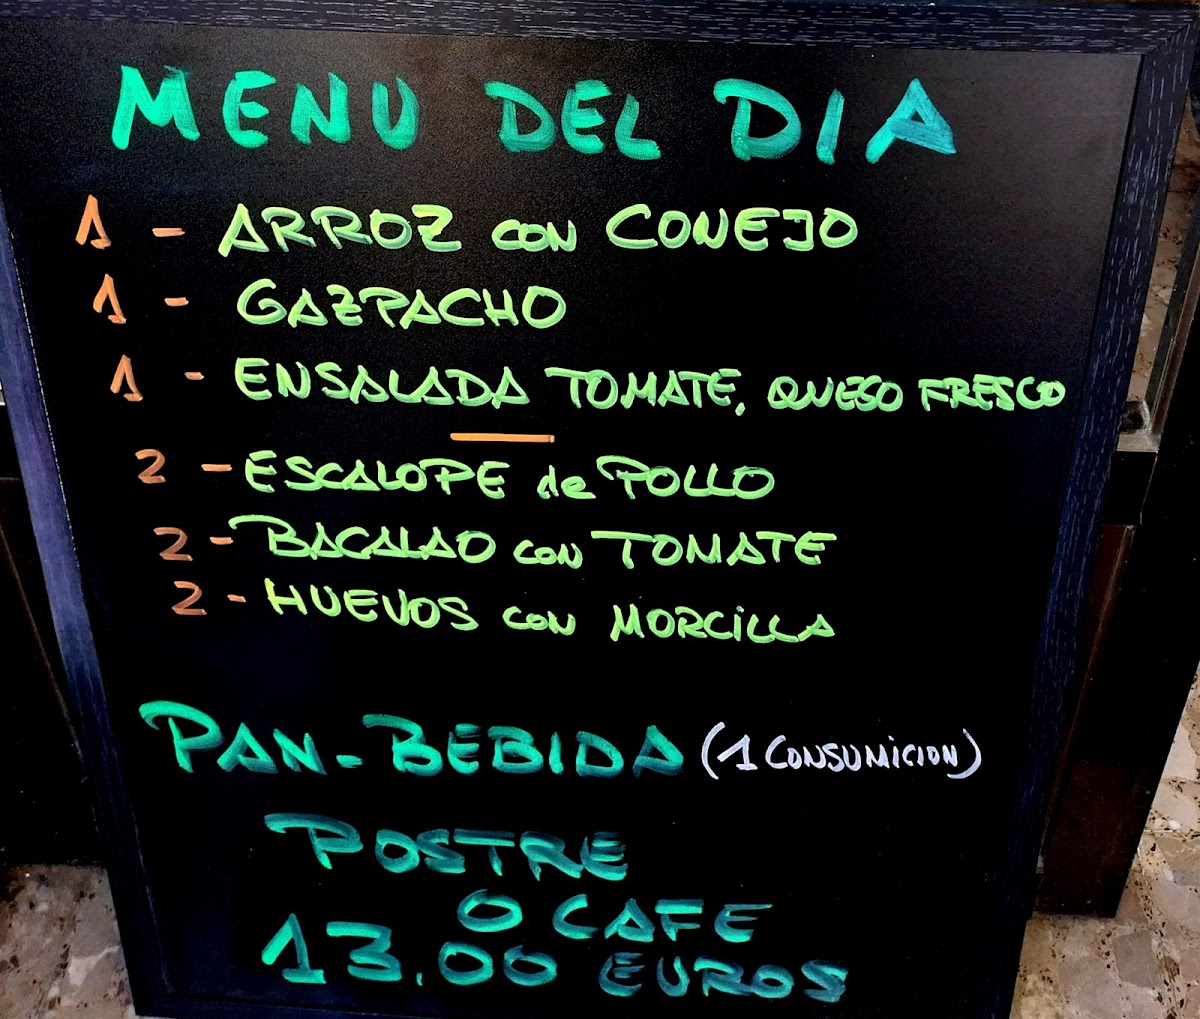 MENU DEL DIA
1 - ARROZ con CONEJO
1 - GAZPACHO
1 - ENSALADA TOMATE, QUESO FRESCO
2 - ESCALOPE de POLLO
2 - BACALAO con TOMATE
2 - HUEVOS con MORCiLLA
PAN - BEBIDA (1 CONSUMICION)
POSTRE
O CAFE
13.00 EUROS